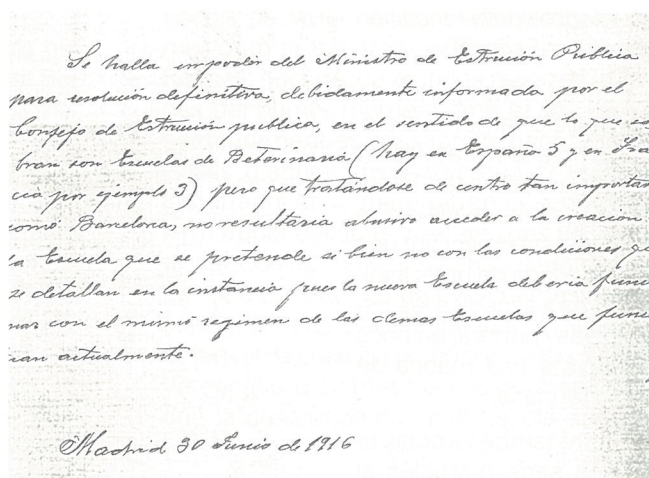 Se halla en poder del Ministro de Estrución Publica
para resolución definitiva, debidamente informada por el
Consejo de Estrucuión publica, en el sentido de que lo que so
bran son Escuelas de Beterinaria (hay en España 5 y en Fra
cia por ejemplo 3) pero que tratándose de centro tan importan
como Barcelona, no resultaria abusivo acceder a la creación
la Escuela que se pretende si bien no con las condiciones qu
se detallan en la instancia pues la nueva Escuela deberia func
nar con el mismo regimen de las demas Escuelas que func
nan actualmente.
Madrid 30 Junio de 1916